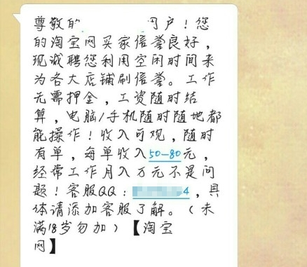 尊敬的 用户！您
的淘宝网买家信誉良好，
现诚聘您利用空闲时间来
为各大店铺刷信誉。工作
无需押金，工资随时结
算，电脑/手机随时随地都
能操作！收入可观，随时
有单，每单收入50-80元，
经常工作月入万元不是问
题！客服QQ： 4，具
体请添加客服了解。（未
满18岁勿加）【淘宝
网】